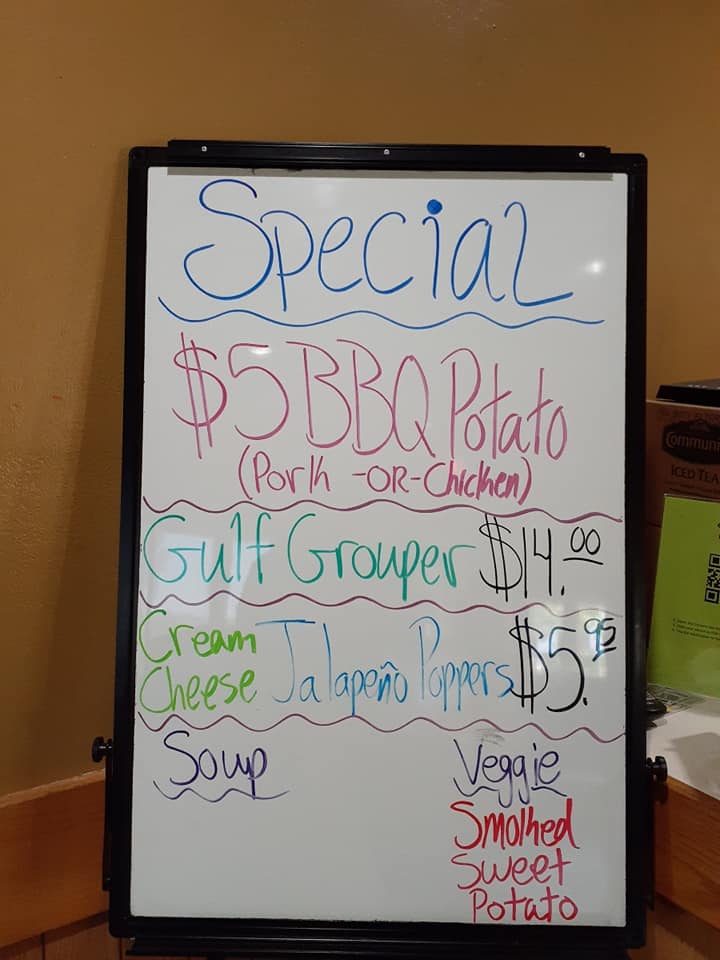 Special
$5 BBQ Potato
(Pork -OR- Chicken)
Gulf Grouper $14.00
Cream Cheese Jalapeño Poppers $5.95
Soup
Veggie
Smoked
Sweet
Potato
ICED TEA